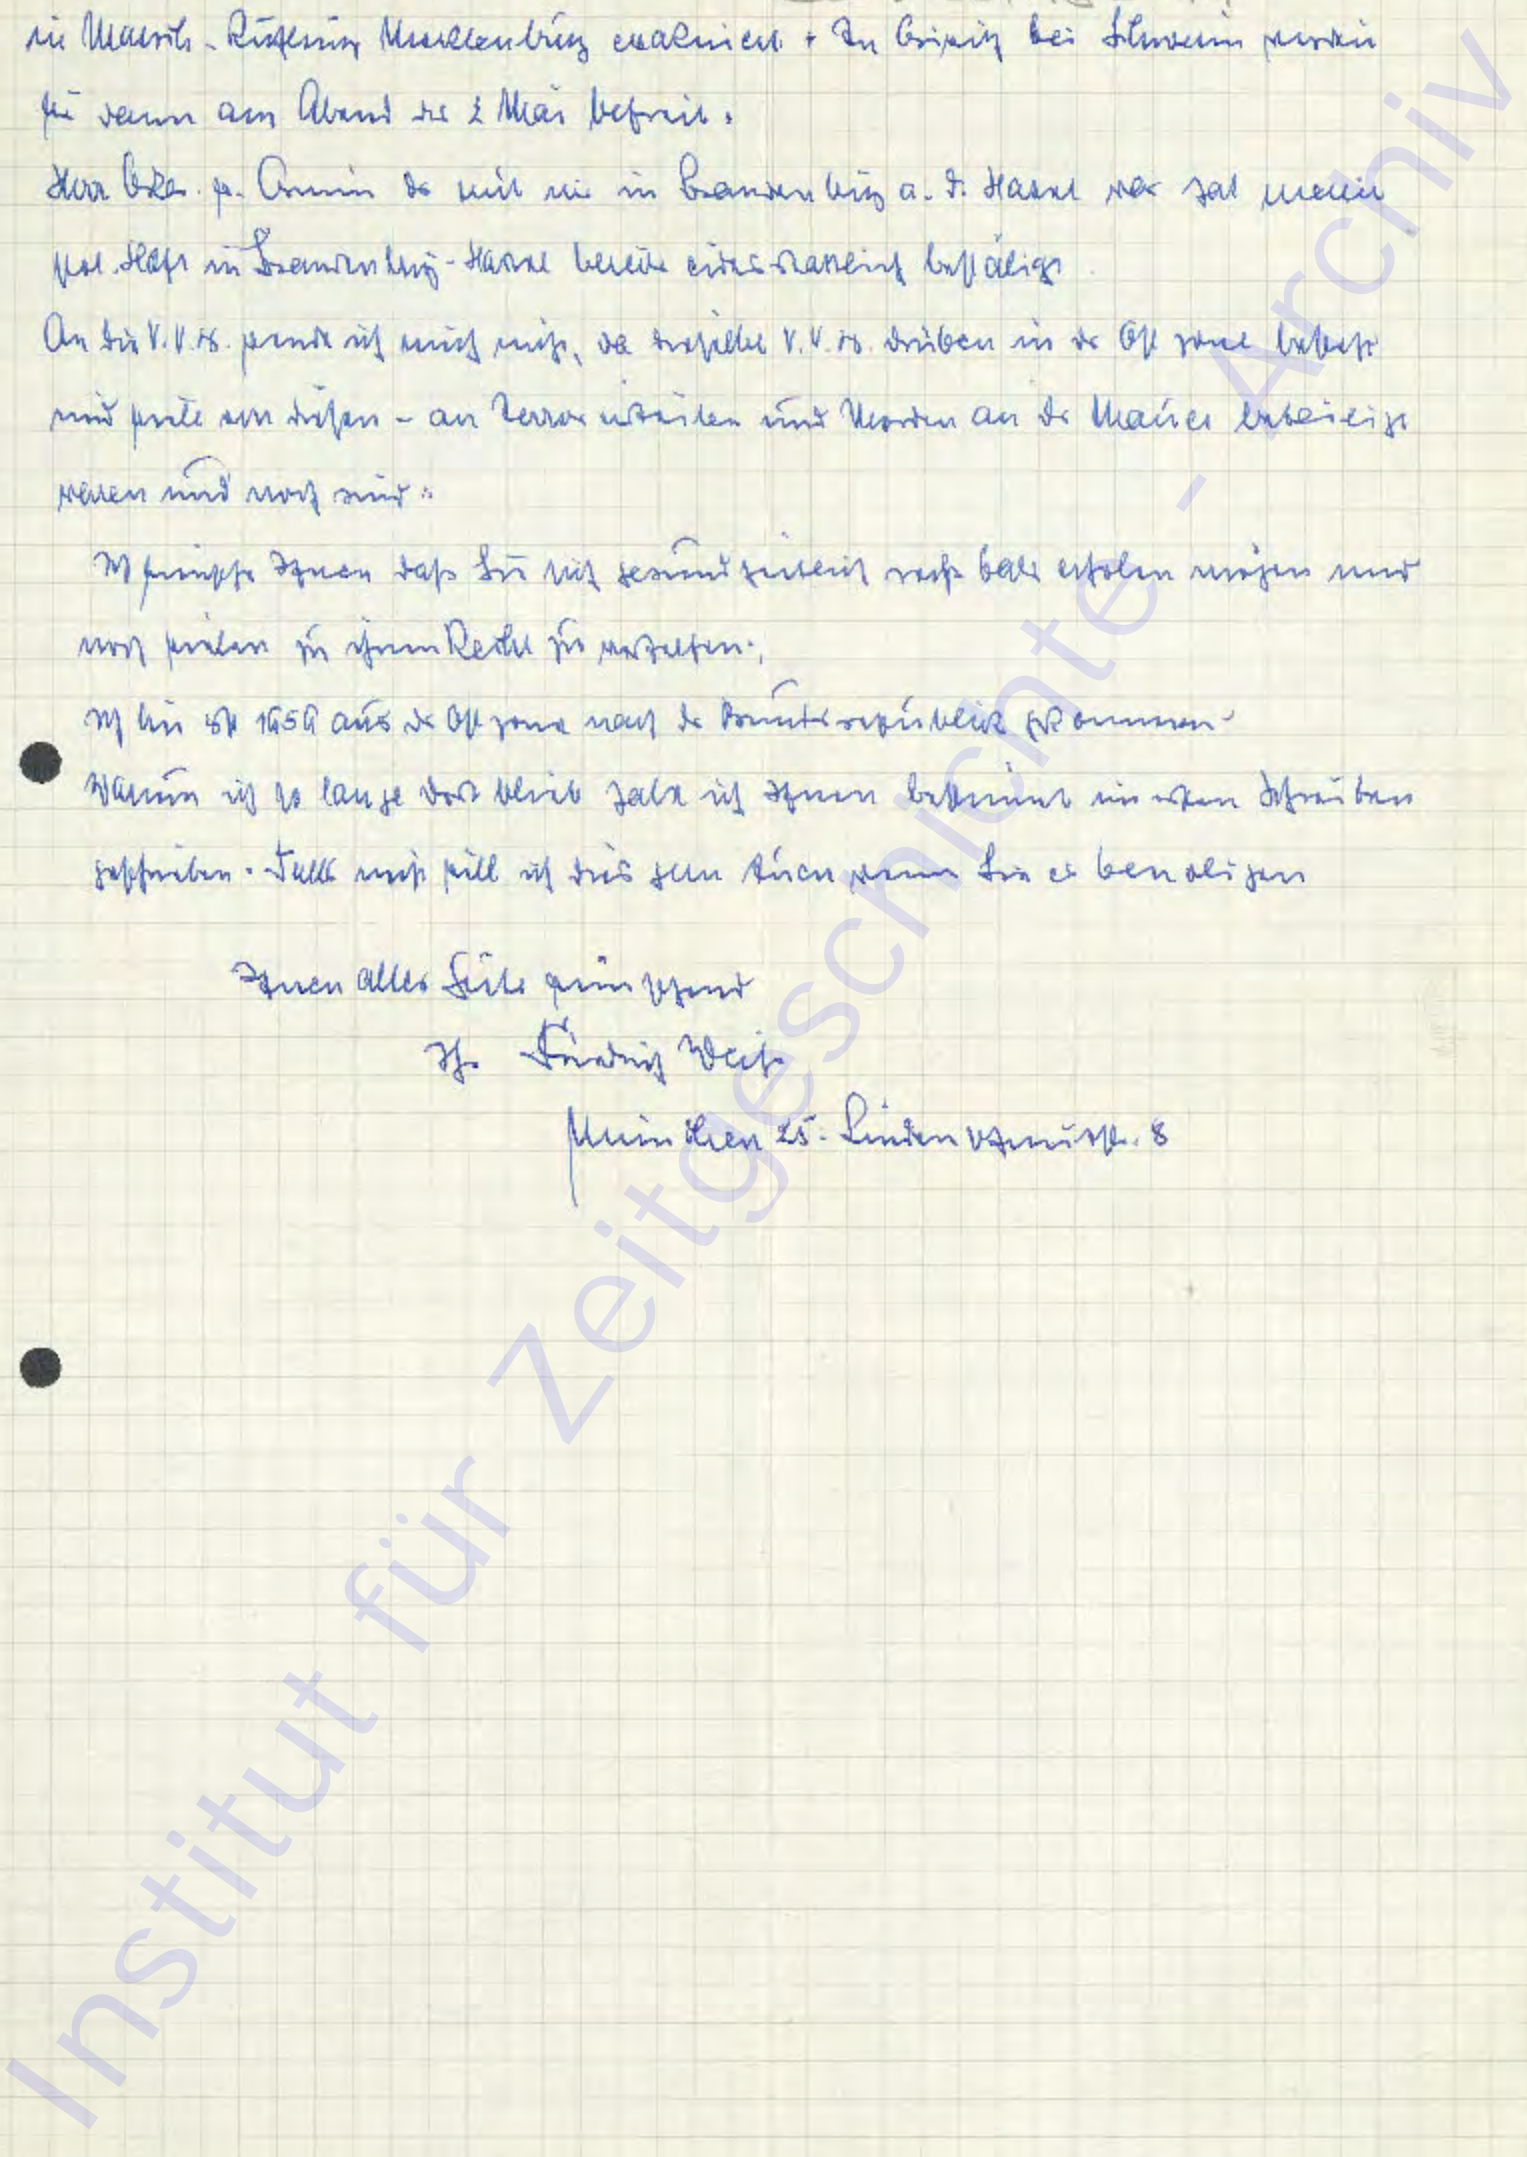 in Marsch-Richtung Mecklenburg evakuiert. In Crivitz bei Schwerin wurden
wir dann am Abend des 2 Mai befreit.
Herr Oskar p. Armin der mit mir in Brandenburg a. d. Havel war hat meine
pol. Haft in Brandenburg-Havel bereits eidesstattlich bestätigt
An die V.V.N. wende ich mich nicht, da dieselbe V.V.N. drüben in der Ostzone besteht
und viele von diesen - an Terrorurteilen und Morden an der Mauer beteiligt
waren und noch sind.
Ich wünsche Ihnen daß Sie sich gesundheitlich recht bald erholen mögen und
noch vielen zu ihrem Recht zu verhelfen.
Ich bin erst 1959 aus der Ostzone nach der Bundesrepublik gekommen.
Warum ich so lange dort blieb habe ich Ihnen bestimmt im ersten Schreiben
geschrieben. Falls nicht will ich dies gern tuen wenn Sie es benötigen
Ihnen alles Gute wünschend
Ihr Friedrich Weiß
München 25. Lindenschmitstr. 8
Institut für Zeitgeschichte - Archiv